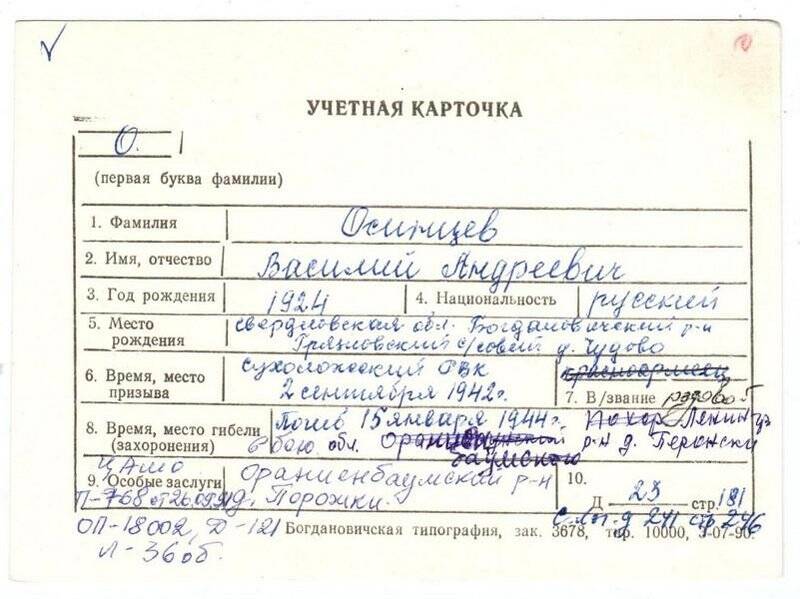 УЧЕТНАЯ КАРТОЧКА
О.
(первая буква фамилии)
1. Фамилия Осинцев
2. Имя, отчество Василий Андреевич
3. Год рождения 1924 4. Национальность русский
5. Место рождения Свердловская обл. Богдановический р-н
Грязновский с/совет д. Чудово
6. Время, место призыва Сухоложский РВК
2 сентября 1942г.
красноармеец
7. В/звание рядовой
8. Время, место гибели (захоронения) Погиб 15 января 1944г.
в бою обл. р-н д.
баумского
9. Особые заслуги Ораниенбаумский р-н
д. Порожки.
ЦАМО
П-768 от 26.09.91
ОП-18002, Д-121
Л-36об.
10.
Д 23 стр. 181
д 241 стр 246
Богдановичская типография, зак. 3678, тир. 10000, 3-07-90.